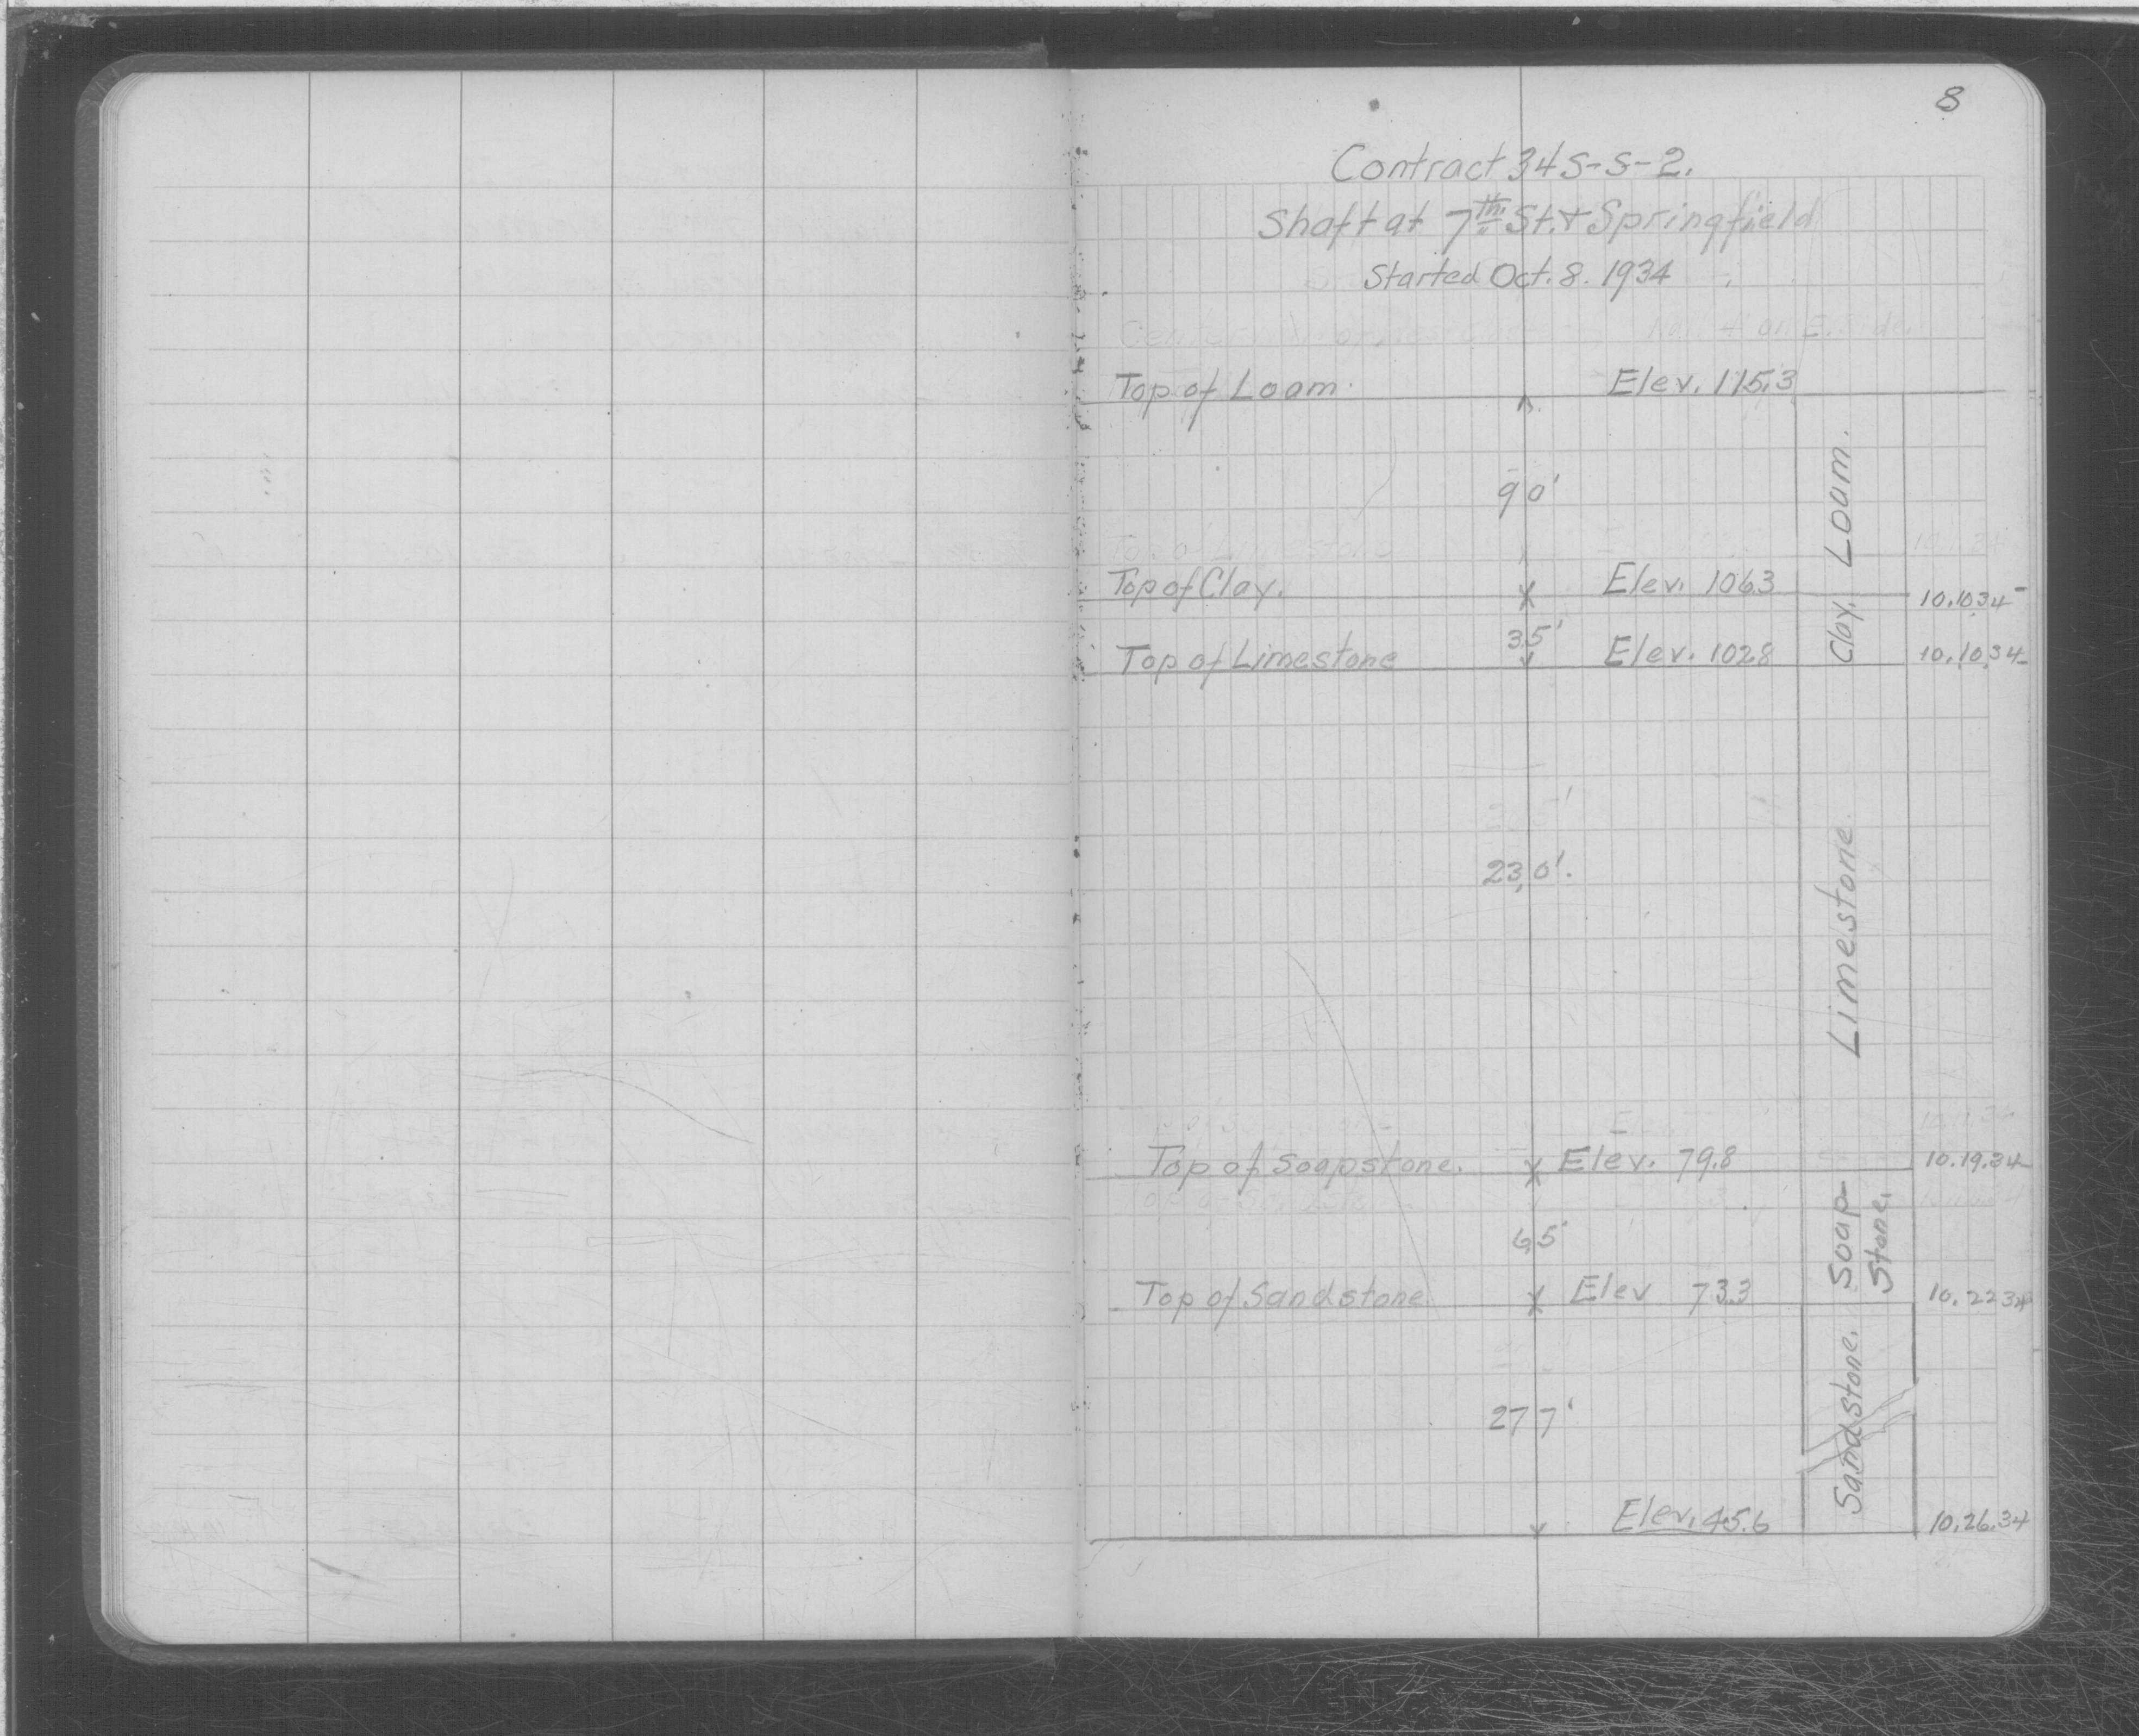 8
Contract 34S-S-2.
Shaft at 7th St. & Springfield
Started Oct. 8. 1934
Top of Loam. Elev. 115.3
9.0'
Loam.
Top of Clay. Elev. 106.3 10.10.34
3.5'
Clay.
Top of Limestone Elev. 102.8 10.10.34
23.0'.
Limestone
Top of Soapstone. Elev. 79.8 10.19.34
6.5'
Soap
Stone.
Top of Sandstone Elev 73.3 10.22.34
27.7'
Sandstone.
Elev. 45.6 10.26.34